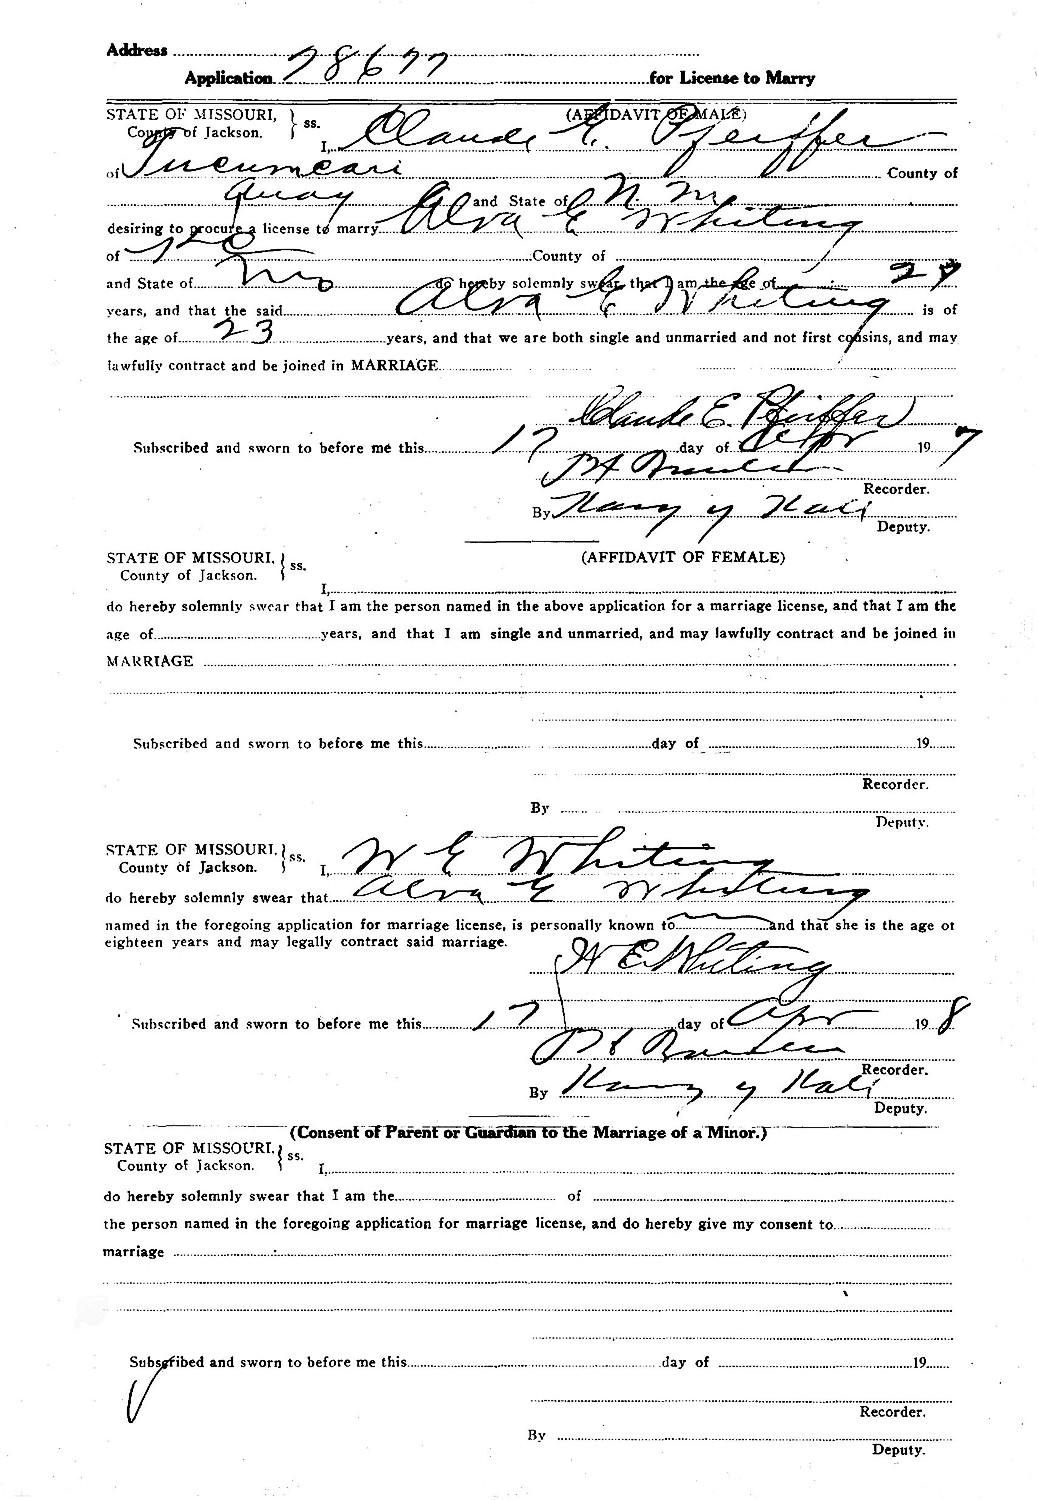 Address
Application 78677 for License to Marry
STATE OF MISSOURI, } ss. (AFFIDAVIT OF MALE)
County of Jackson. I, Claude E. Pfeiffer
of Tucumcari County of
Quay and State of N. M.
desiring to procure a license to marry Alva E Whiting
of County of
and State of Mo do hereby solemnly swear, that I am the age of 29
years, and that the said Alva E Whiting is of
the age of 23 years, and that we are both single and unmarried and not first cousins, and may
lawfully contract and be joined in MARRIAGE
Claude E. Pfeiffer
Subscribed and sworn to before me this 17 day of Apr 19 7
Recorder.
By Harry
Deputy.
STATE OF MISSOURI, } ss. (AFFIDAVIT OF FEMALE)
County of Jackson. I,
do hereby solemnly swear that I am the person named in the above application for a marriage license, and that I am the
age of years, and that I am single and unmarried, and may lawfully contract and be joined in
MARRIAGE
Subscribed and sworn to before me this day of 19
Recorder.
By
Deputy.
STATE OF MISSOURI, } ss.
County of Jackson. I, W E Whiting
do hereby solemnly swear that Alva E Whiting
named in the foregoing application for marriage license, is personally known to and that she is the age of
eighteen years and may legally contract said marriage.
W E Whiting
Subscribed and sworn to before me this 17 day of Apr 19 8
Recorder.
By Harry
Deputy.
(Consent of Parent or Guardian to the Marriage of a Minor.)
STATE OF MISSOURI, } ss.
County of Jackson. I,
do hereby solemnly swear that I am the of
the person named in the foregoing application for marriage license, and do hereby give my consent to
marriage
Subscribed and sworn to before me this day of 19
Recorder.
By
Deputy.